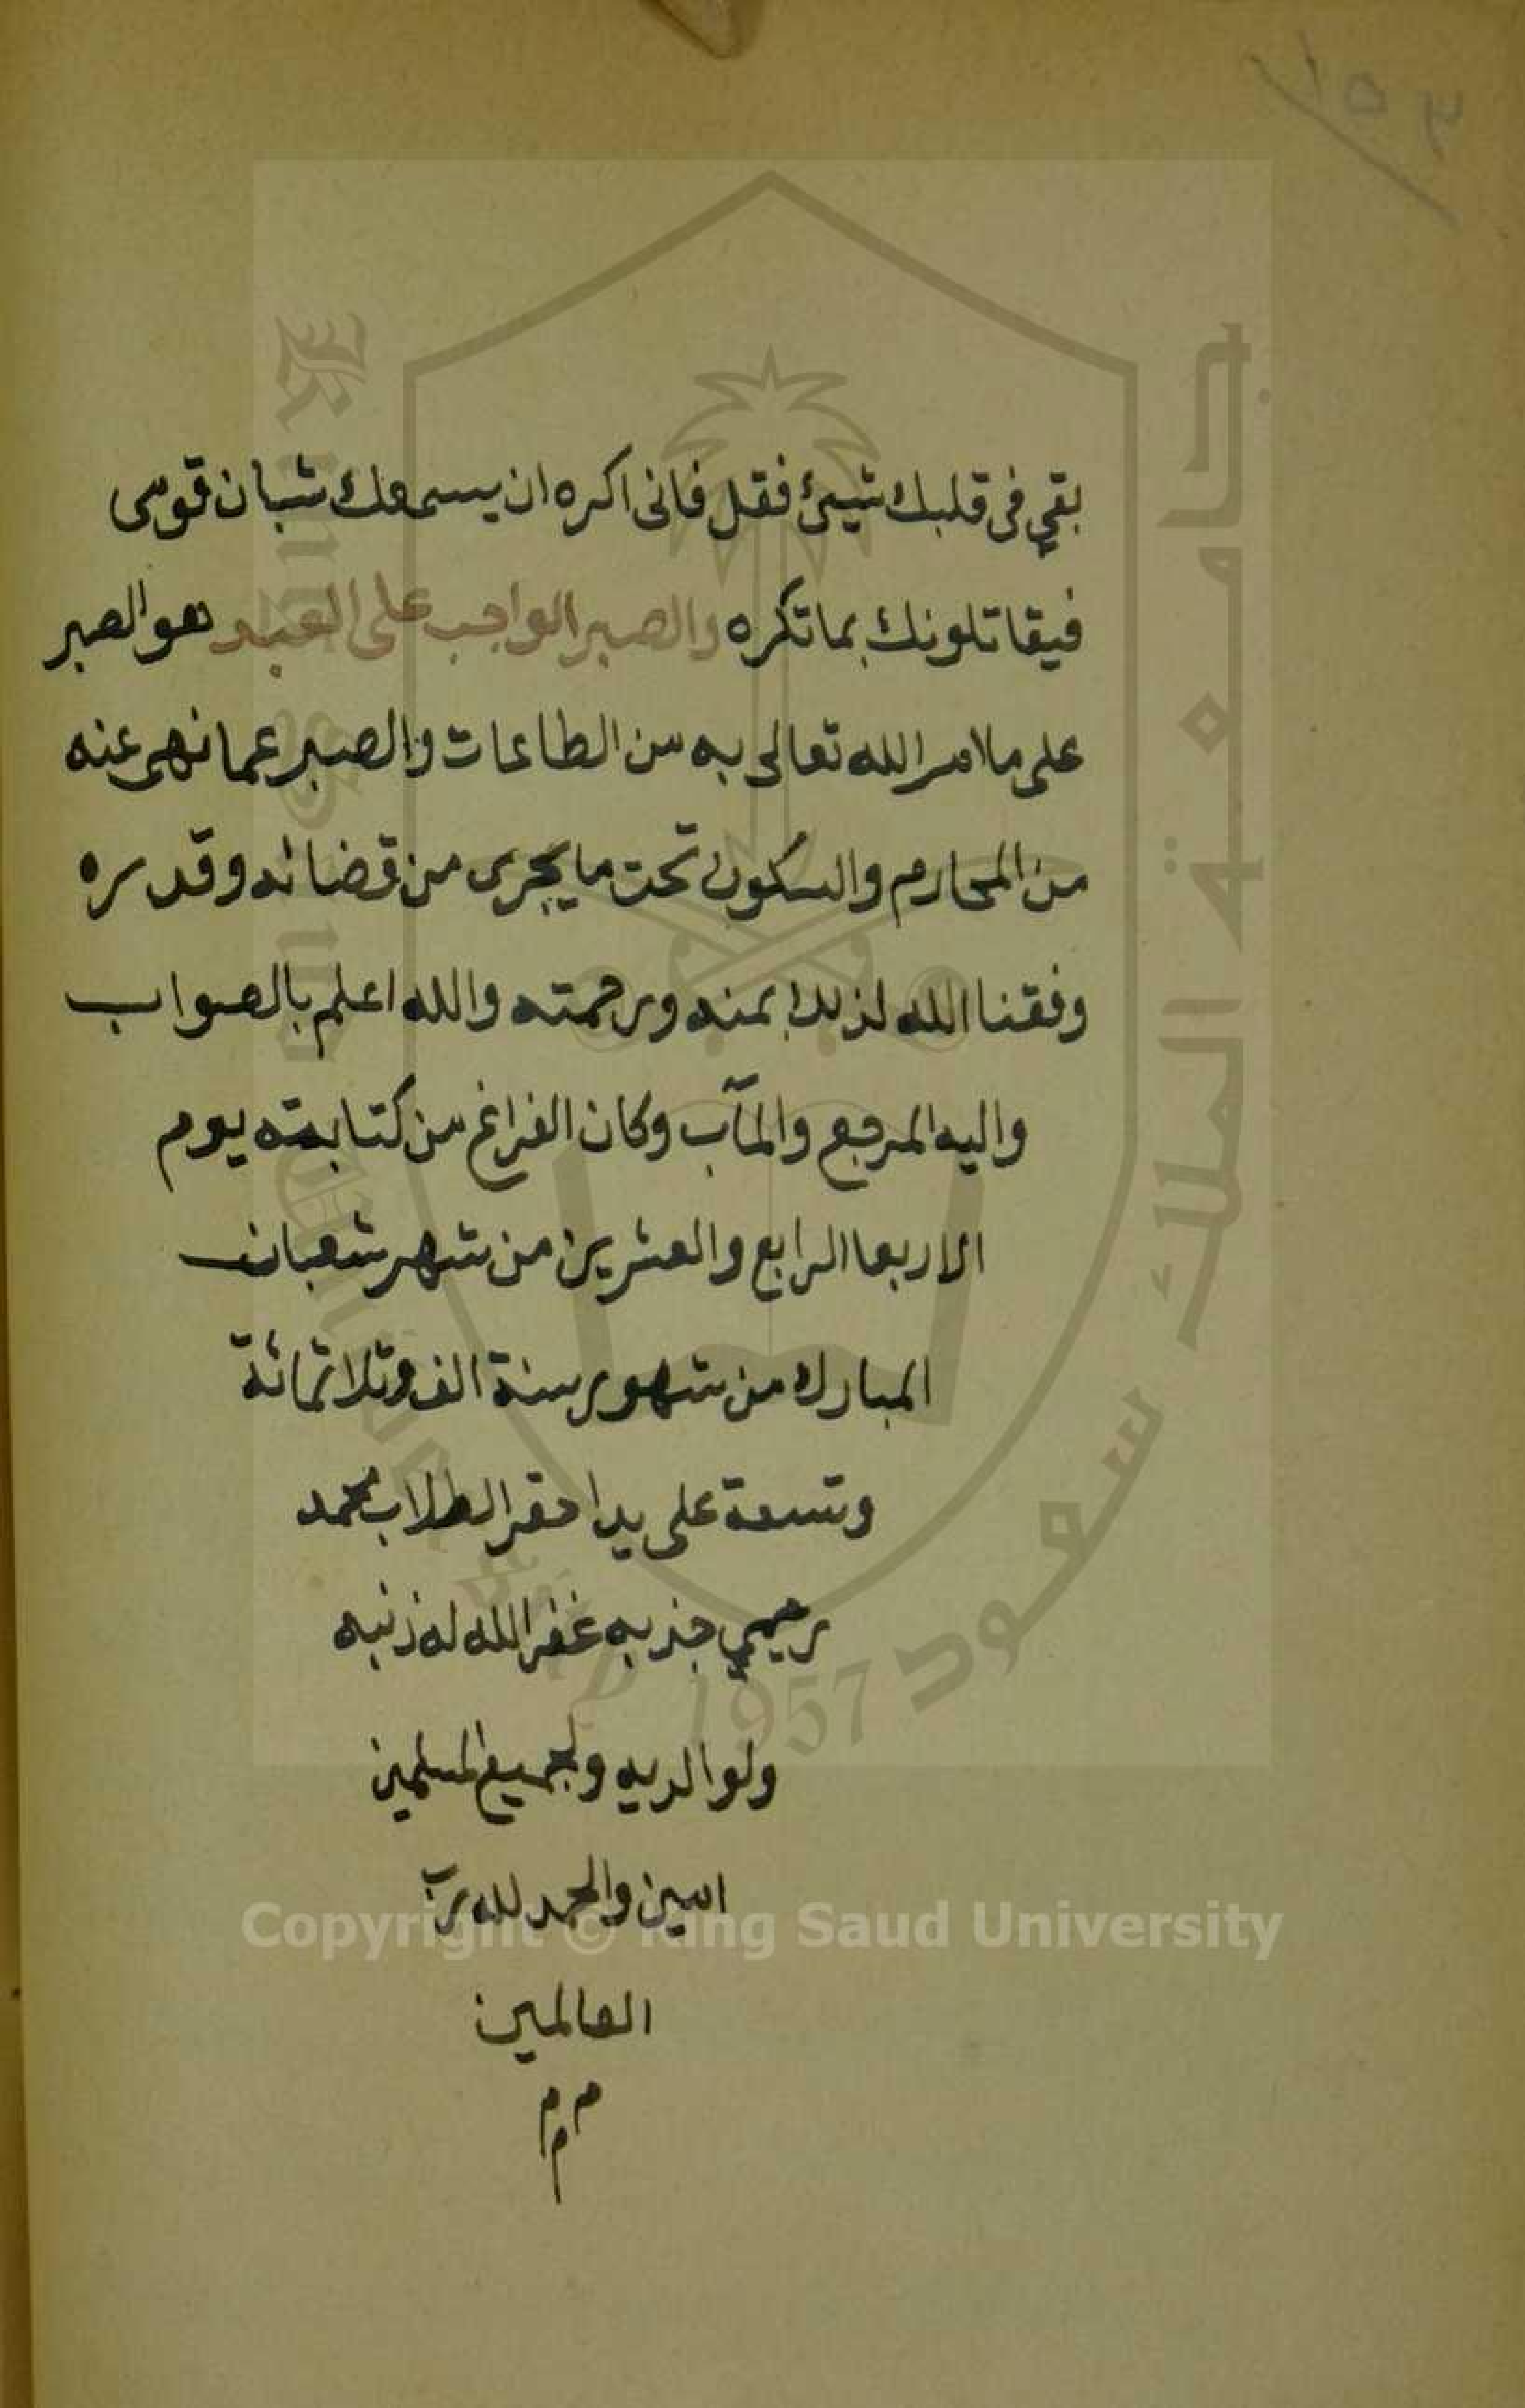 بقي في قلبك شيئ فقل فاني اكره ان يسمعك شبان قومى
فيقاتلونك بما تكره والصبر الواجب على العبد هو الصبر
على ما امر الله تعالى به من الطاعات والصبر عما نهى عنه
من المحارم والسكون تحت ما يجرى من قضائه وقدره
وفقنا الله لذلك بمنه ورحمته والله اعلم بالصواب
واليه المرجع والمآب وكان الفراغ من كتابته يوم
الاربعا الرابع والعشرين من شهر شعبان
المبارك من شهور سنة الف وثلاثمائة
وتسعة على يد احقر الطلاب محمد
رحيمي غفر الله له ذنبه
ولوالديه ولجميع المسلمين
امين والحمد لله رب
العالمين
م م م
جامعة الملك سعود
King Saud University
1957
Copyright © King Saud University